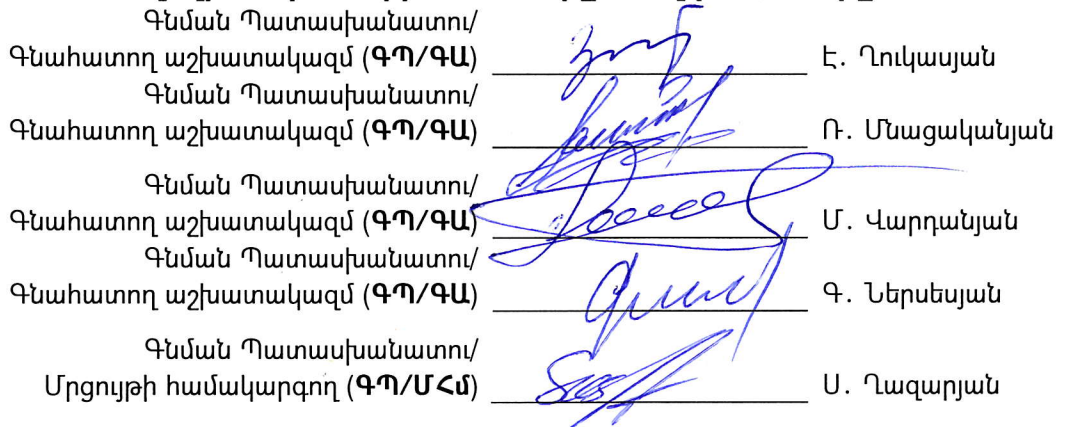 Գնման Պատասխանատու/
Գնահատող աշխատակազմ (ԳՊ/ԳԱ) Է. Ղուկասյան
Գնման Պատասխանատու/
Գնահատող աշխատակազմ (ԳՊ/ԳԱ) Ռ. Մնացականյան
Գնման Պատասխանատու/
Գնահատող աշխատակազմ (ԳՊ/ԳԱ) Մ. Վարդանյան
Գնման Պատասխանատու/
Գնահատող աշխատակազմ (ԳՊ/ԳԱ) Գ. Ներսեսյան
Գնման Պատասխանատու/
Մրցույթի համակարգող (ԳՊ/ՄՀմ) Ս. Ղազարյան